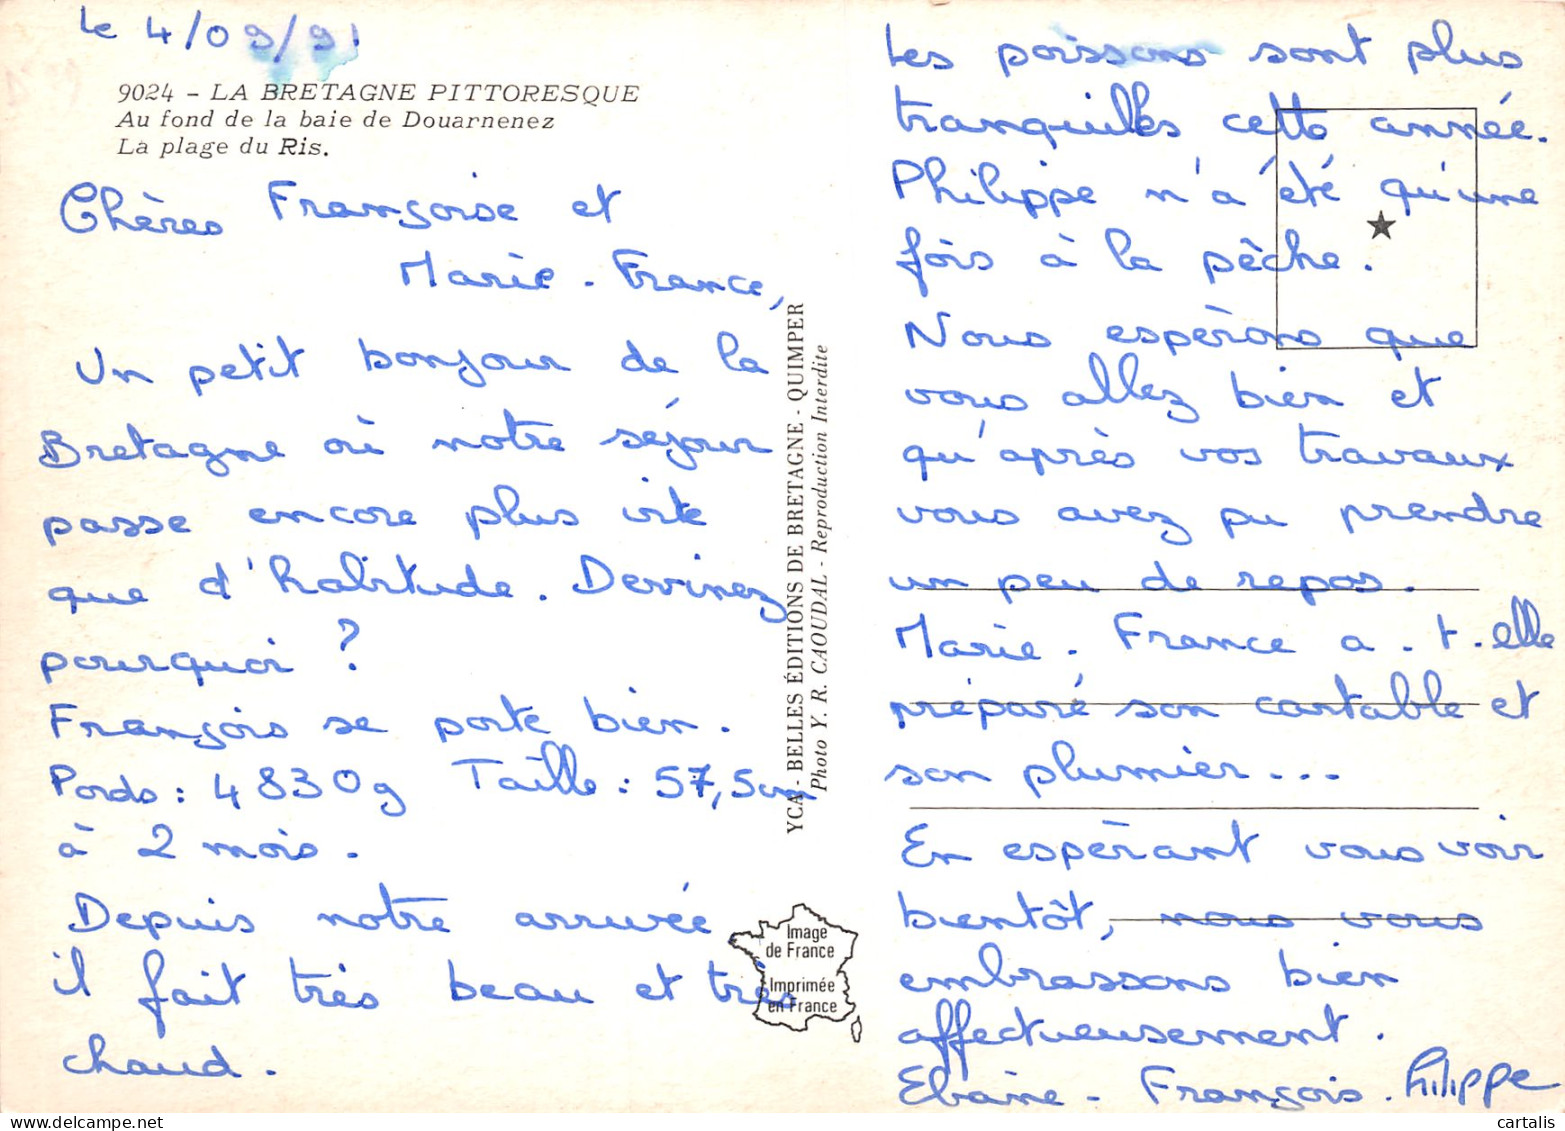 Le 4/09/91
9024 - LA BRETAGNE PITTORESQUE
Au fond de la baie de Douarnenez
La plage du Ris.
Chères Françoise et
Marie-France,
Un petit bonjour de la
Bretagne où notre séjour
passe encore plus vite
que d'habitude. Devinez
pourquoi ?
François se porte bien.
Poids : 4 830 g Taille : 57,5 cm
à 2 mois.
Depuis notre arrivée
il fait très beau et très
chaud.
YCA - BELLES ÉDITIONS DE BRETAGNE - QUIMPER
Photo Y. R. CAOUDAL - Reproduction Interdite
Image
de France
Imprimée
en France
Les poissons sont plus
tranquilles cette année.
Philippe n'a été qu'une
fois à la pêche.
Nous espèrons que
vous allez bien et
qu'après vos travaux
vous avez pu prendre
un peu de repos.
Marie-France a-t-elle
préparé son cartable et
son plumier...
En espèrant vous voir
bientôt, nous vous
embrassons bien
affectueusement.
François. Philippe
cartalis